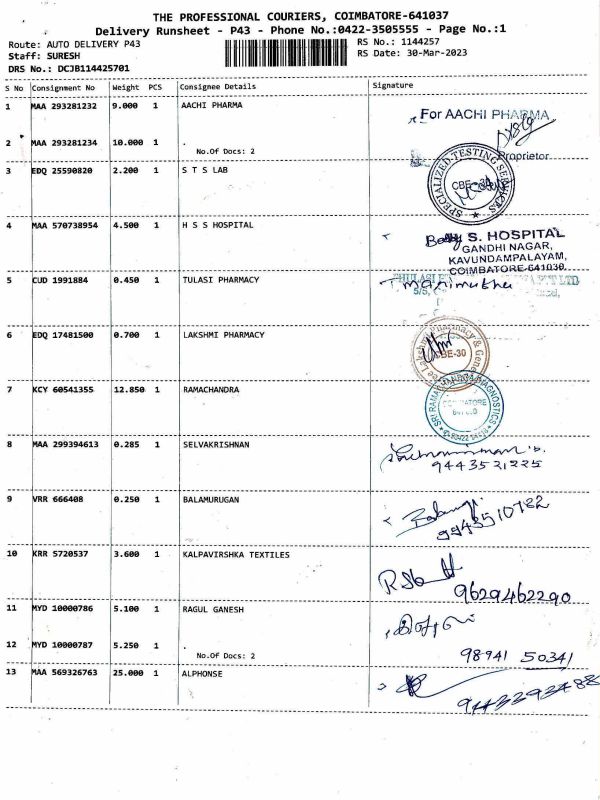 THE PROFESSIONAL COURIERS, COIMBATORE-641037
Delivery Runsheet - P43 - Phone No.:0422-3505555 - Page No.:1
Route: AUTO DELIVERY P43
RS No.: 1144257
Staff: SURESH
RS Date: 30-Mar-2023
DRS No.: DCJB114425701
S No Consignment No Weight PCS Consignee Details Signature
1 MAA 293281232 9.000 1 AACHI PHARMA
For AACHI PHARMA
2 MAA 293281234 10.000 1 .
No.Of Docs: 2
Proprietor
3 EDQ 25590820 2.200 1 S T S LAB
SPECIALIZED TESTING SERVICES
CBE-30
4 MAA 570738954 4.500 1 H S S HOSPITAL
S. HOSPITAL
GANDHI NAGAR,
KAVUNDAMPALAYAM,
COIMBATORE-641030.
5 CUD 1991884 0.450 1 TULASI PHARMACY
Manimutha
6 EDQ 17481500 0.700 1 LAKSHMI PHARMACY
Lakshmi Pharmacy &
CBE-30
7 KCY 60541355 12.850 1 RAMACHANDRA
SRI RAMACHANDRA DIAGNOSTICS
COIMBATORE
8 MAA 299394613 0.285 1 SELVAKRISHNAN
9443521225
9 VRR 666408 0.250 1 BALAMURUGAN
9943510782
10 KRR 5720537 3.600 1 KALPAVIRSHKA TEXTILES
9629462290
11 MYD 10000786 5.100 1 RAGUL GANESH
12 MYD 10000787 5.250 1 .
No.Of Docs: 2
98941 50341
13 MAA 569326763 25.000 1 ALPHONSE
9443293488